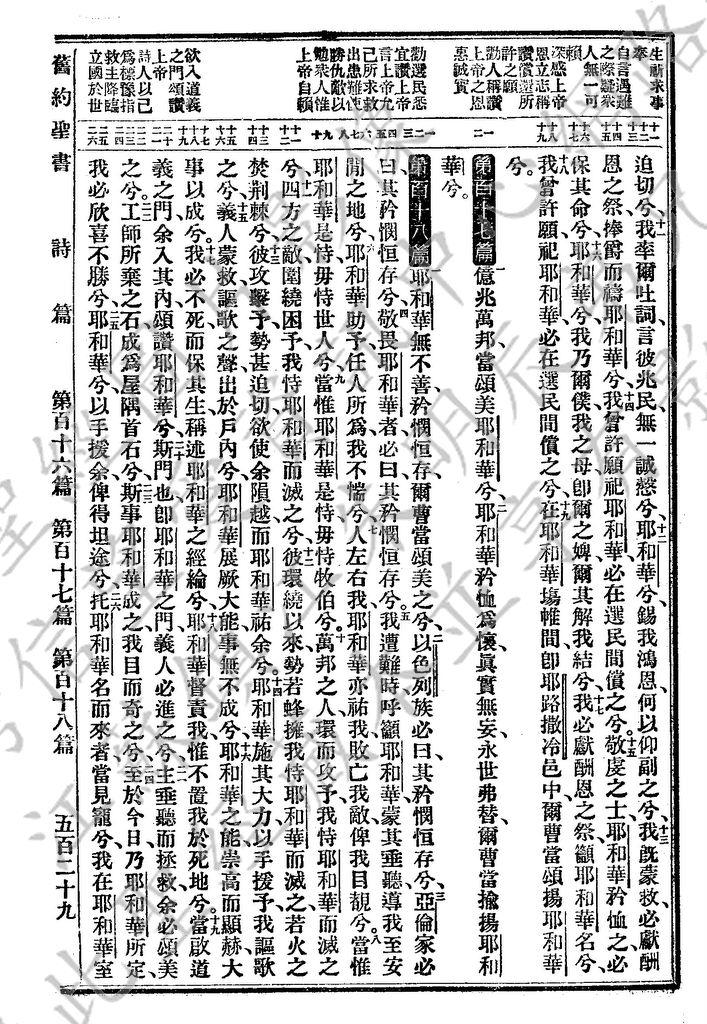 自言遇難
之際疑衆
人無一可
賴
深感上帝
恩立志稱
讚償還所
許之願
勸人稱讚
上帝之恩
惠誠實
勸選民悉
宜讚上帝
言上帝允
己所求救
出患難使
勝仇敵以
勉衆人惟
上帝自賴
欲入道義
之門頌讚
詩人以己
爲標豫指
救主降臨
立國於世
迫切兮十一我率爾吐詞言彼兆民無一誠慤兮十二耶和華兮錫我鴻恩何以仰副之兮十三我旣蒙救必獻酬
恩之祭捧爵而禱耶和華兮十四我曾許願祀耶和華必在選民間償之兮十五敬虔之士耶和華矜恤之必
保其命兮十六耶和華兮我乃爾僕我之母卽爾之婢爾其解我結兮十七我必獻酬恩之祭籲耶和華名兮
十八我曾許願祀耶和華必在選民間償之兮十九在耶和華塲帷間卽耶路撒冷邑中爾曹當頌揚耶和華
兮
第百十七篇一億兆萬邦當頌美耶和華兮二耶和華矜恤爲懷眞實無妄永世弗替爾曹當揄揚耶和
華兮
第百十八篇一耶和華無不善矜憫恒存爾曹當頌美之兮二以色列族必曰其矜憫恒存兮三亞倫家必
曰其矜憫恒存兮四敬畏耶和華者必曰其矜憫恒存兮五我遭難時呼籲耶和華蒙其垂聽導我至安
閒之地兮六耶和華助予任人所爲我不惴兮七人左右我耶和華亦祐我敗亡我敵俾我目覩兮八當惟
耶和華是恃毋恃世人兮九當惟耶和華是恃毋恃牧伯兮十萬邦之人環而攻予我恃耶和華而滅之
兮十一四方之敵圍繞困予我恃耶和華而滅之兮十二彼環繞以來勢若蜂擁我恃耶和華而滅之若火之
焚荆棘兮十三彼攻擊予勢甚迫切欲使余隕越而耶和華祐余兮十四耶和華施其大力以手援予我謳歌
之兮十五義人蒙救謳歌之聲出於戶內兮耶和華展厥大能事無不成兮十六耶和華之能崇高而顯赫大
事以成兮十七我必不死而保其生稱述耶和華之經綸兮十八耶和華督責我惟不置我於死地兮十九當啟道
義之門余入其內頌讚耶和華兮二十斯門也卽耶和華之門義人必進之兮二一主垂聽而拯救余必頌美
之兮二二工師所棄之石成爲屋隅首石兮二三斯事耶和華成之我目而奇之兮二四至於今日乃耶和華所定
我必欣喜不勝兮二五耶和華兮以手援余俾得坦途兮二六托耶和華名而來者當見寵兮我在耶和華室
舊約聖書　詩篇　第百十六篇　第百十七篇　第百十八篇　五百二十九